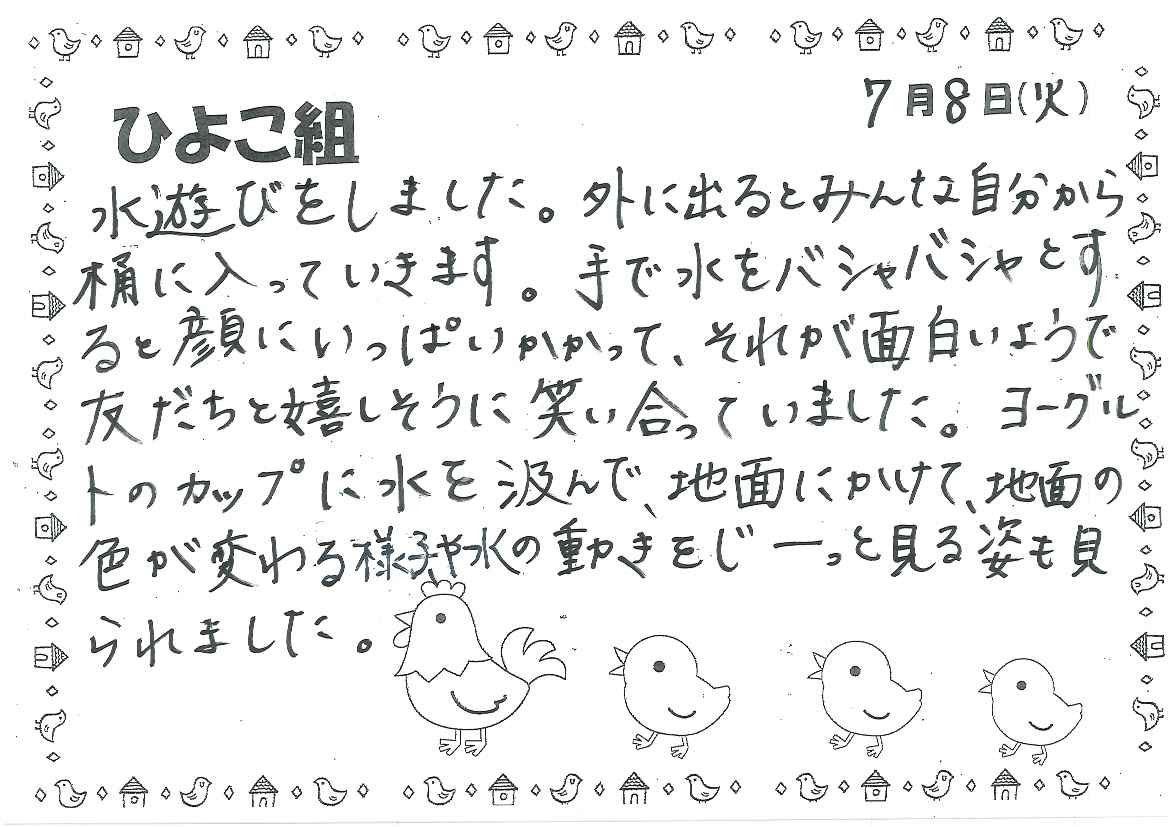 7月8日(火)
ひよこ組
水遊びをしました。外に出るとみんな自分から
桶に入っていきます。手で水をバシャバシャとす
ると顔にいっぱいかかって、それが面白いようで
友だちと嬉しそうに笑い合っていました。ヨーグル
トのカップに水を汲んで、地面にかけて、地面の
色が変わる様子や水の動きをじーっと見る姿も見
られました。